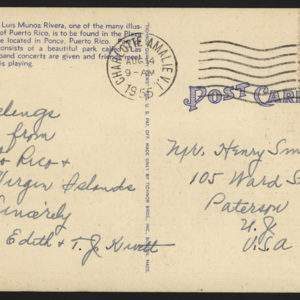 Luis Munoz Rivera, one of the many illus-
of Puerto Rico, is to be found in the
e located in Ponce, Puerto Rico.
onsists of a beautiful park called Las
band concerts are given and friends meet
is playing.
CHARLOTTE AMALIE V.I.
AUG
9 - AM
1955
POST CARD
TICHNOR BROS. INC., BOSTON, MASS.
from
o Rico &
Virgin Islands
Sincerely
Edith & T. J.
Mr. Henry Sm
105 Ward S
Paterson
N.J.
U.S.A